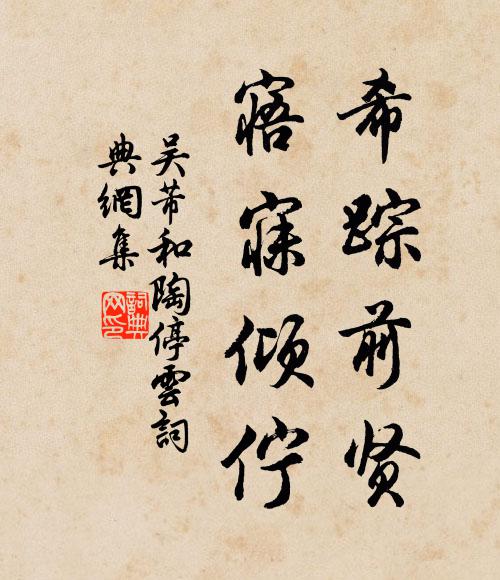 希踪前贤
寤寐倾伫
吴芾和陶停雲詞
典網集
詞典
网印